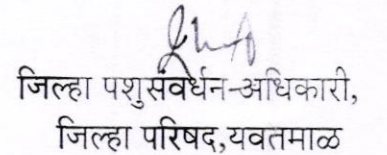 जिल्हा पशुसंवर्धन-अधिकारी,
जिल्हा परिषद,यवतमाळ